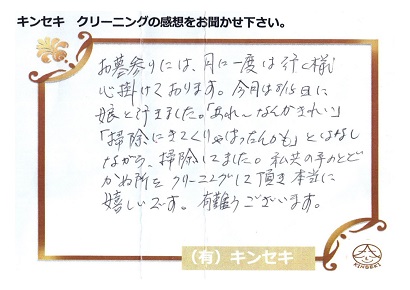 キンセキ　クリーニングの感想をお聞かせ下さい。
お墓参りには、月に一度は行く様に
心掛けております。今月は8/15日に
娘と行きました。「あれ〜なんかきれい」
「掃除にきてくりゃはったんかも」とはなし
ながら、掃除してました。私共の手のとど
かぬ所をクリーニングして頂き本当に
嬉しいです。有難うございます。
（有）キンセキ
KINSEKI